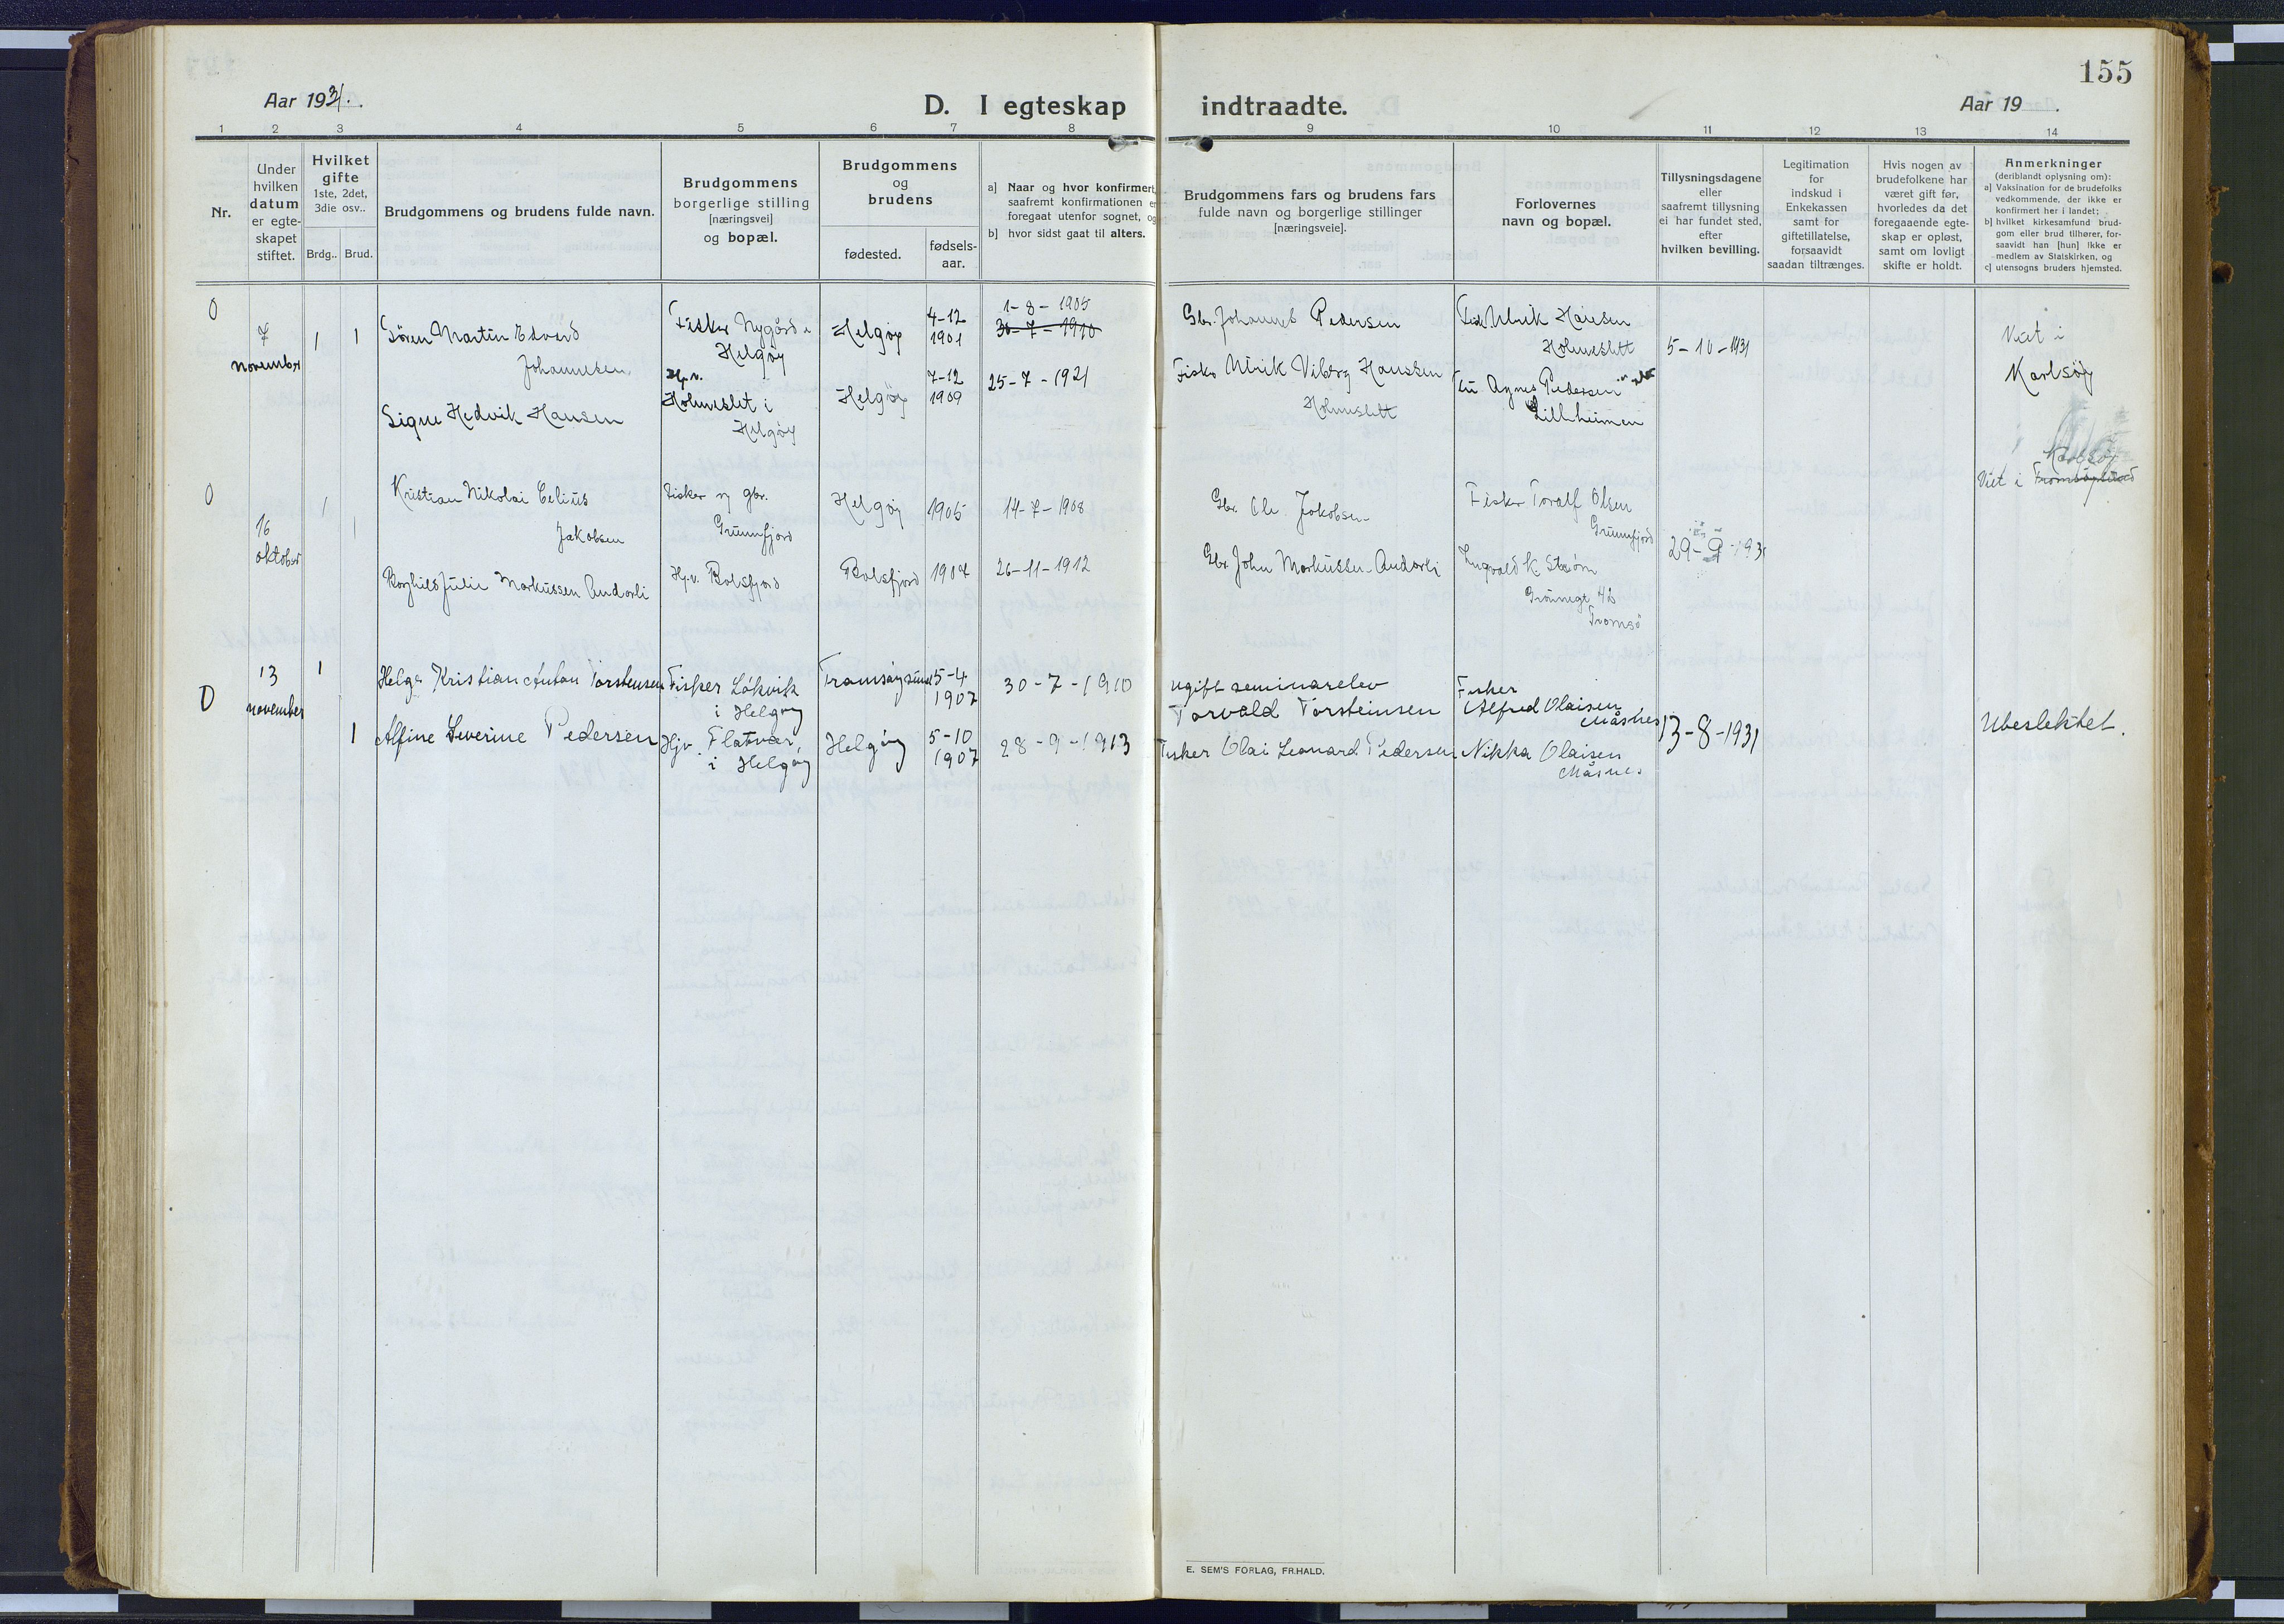 155
Aar 1931.
D. I egteskap indtraadte.
Aar 19 .
1 2 3 4 5 6 7 8 9 10 11 12 13 14
Nr.
Under
hvilken
datum
er egte-
skapet
stiftet.
Hvilket
gifte
1ste, 2det,
3die osv..
Brdg.. Brud.
Brudgommens og brudens fulde navn.
Brudgommens
borgerlige stilling
[næringsvei]
og bopæl.
Brudgommens
og
brudens
fødested.
fødsels-
aar.
a] Naar og hvor konfirmert,
saafremt konfirmationen er
foregaat utenfor sognet, og
b] hvor sidst gaat til alters.
Brudgommens fars og brudens fars
fulde navn og borgerlige stillinger
[næringsveie].
Forlovernes
navn og bopæl.
Tillysningsdagene
eller
saafremt tillysning
ei har fundet sted,
efter
hvilken bevilling.
Legitimation
for
indskud i
Enkekassen
samt for
giftetillatelse,
forsaavidt
saadan tiltrænges.
Hvis nogen av
brudefolkene har
været gift før,
hvorledes da det
foregaaende egte-
skap er opløst,
samt om lovligt
skifte er holdt.
Anmerkninger
(deriblandt oplysning om):
a] Vaksination for de brudefolks
vedkommende, der ikke er
konfirmert her i landet;
b] hvilket kirkesamfund brud-
gom eller brud tilhører, for-
saavidt han [hun] ikke er
medlem av Statskirken, og
c] utensogns bruders hjemsted.
0
7
november
1 1
Søren Martin Edvard
Johannesen.
Fisker Nygård i
Helgøy
Helgøy
4-12
1901
1-8-1905
30-7-1910
Gbr. Johannes Pedersen
Fisk. Ulrik Hansen
Holmeslett
5-10-1931
Viet i
Karlsøy
Signe Hedvik Hansen
Hj.v.
Holmeslet i
Helgøy
Helgøy
7-12
1909
25-7-1921
Fisker Ulrik Viberg Hanssen
Holmeslett
Fru Agnes Pedersen
Lillheimen
0
16
oktober
1 1
Kristian Nikolai Celius
Jakobsen
Fisker og gbr.
Grunnfjord
Helgøy
1905
14-7-1908
Gbr. Ole Jakobsen
Fisker Toralf Olsen
Grunnfjord
29-9-1931
Karlsøy
Viet i Tromsøysund
Borghild Julie Markussen Andorli
Hj.v. Balsfjord
Balsfjord
1904
26-11-1912
Gbr. John Markussen Andorli
Ingvald K Strøm
Grønnegt 42
Tromsø
0
13
november
1
Helge Kristian Anton Torsteinsen
Fisker Løkvik
i Helgøy
Tromsøysund
5-4
1907
30-7-1910
ugift seminarelev
Torvald Torsteinsen
Fisker
Alfred Olaisen
Måsnes
13-8-1931
Ubeslektet.
1
Alfine Severine Pedersen
Hjv. Flatvær,
i Helgøy
Helgøy
5-10
1907
28-9-1913
Fisker Olai Leonard Pedersen
Nikka Olaisen
Måsnes
E. SEM'S FORLAG, FR.HALD.